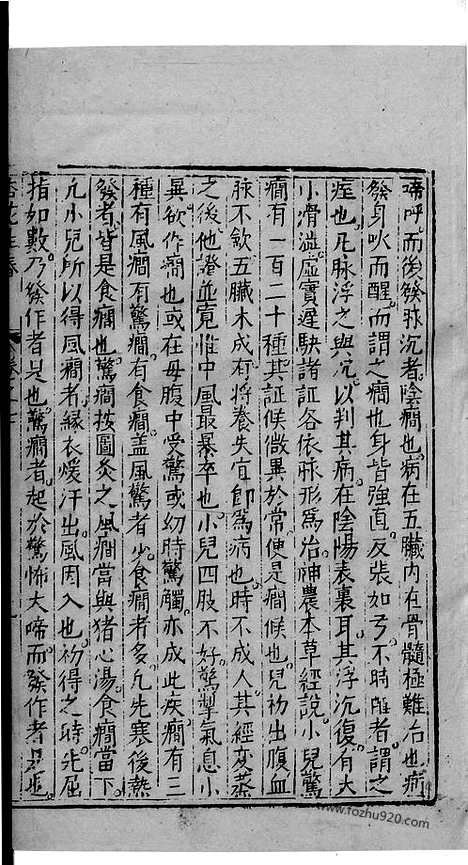 啼呼而後發脉沉者陰癇也病在五臟內在骨髓極難治也病
發身吹而醒而謂之癇也身皆強直反張如弓不時醒者謂之
痓也凡脉浮之與沉以判其病在陰陽表裏耳其浮沉復有大
小滑澁虛實遲駃諸証各依脉形爲治神農本草經說小兒驚
癇有一百二十種其証候微異於常便是癇候也兒初出腹血
脉不斂五臟木成有將養失宜卽爲病也時不成人其經変蒸
之後他證並寬惟中風最暴卒也小兒四肢不好驚掣氣息小
異欲作癇也或在母腹中受驚或幼時驚觸亦成此疾癇有三
種有風癇有驚癇有食癇盖風驚者少食癇者多凢先寒後熱
發者皆是食癇也驚癇按圖灸之風癇當與猪心湯食癇當下
凢小兒所以得風癇者緣衣煖汗出風因入也初得之時先屈
指如數乃發作者是也驚癇者起於驚怖大啼而發作者是也
www.fozhu920.com